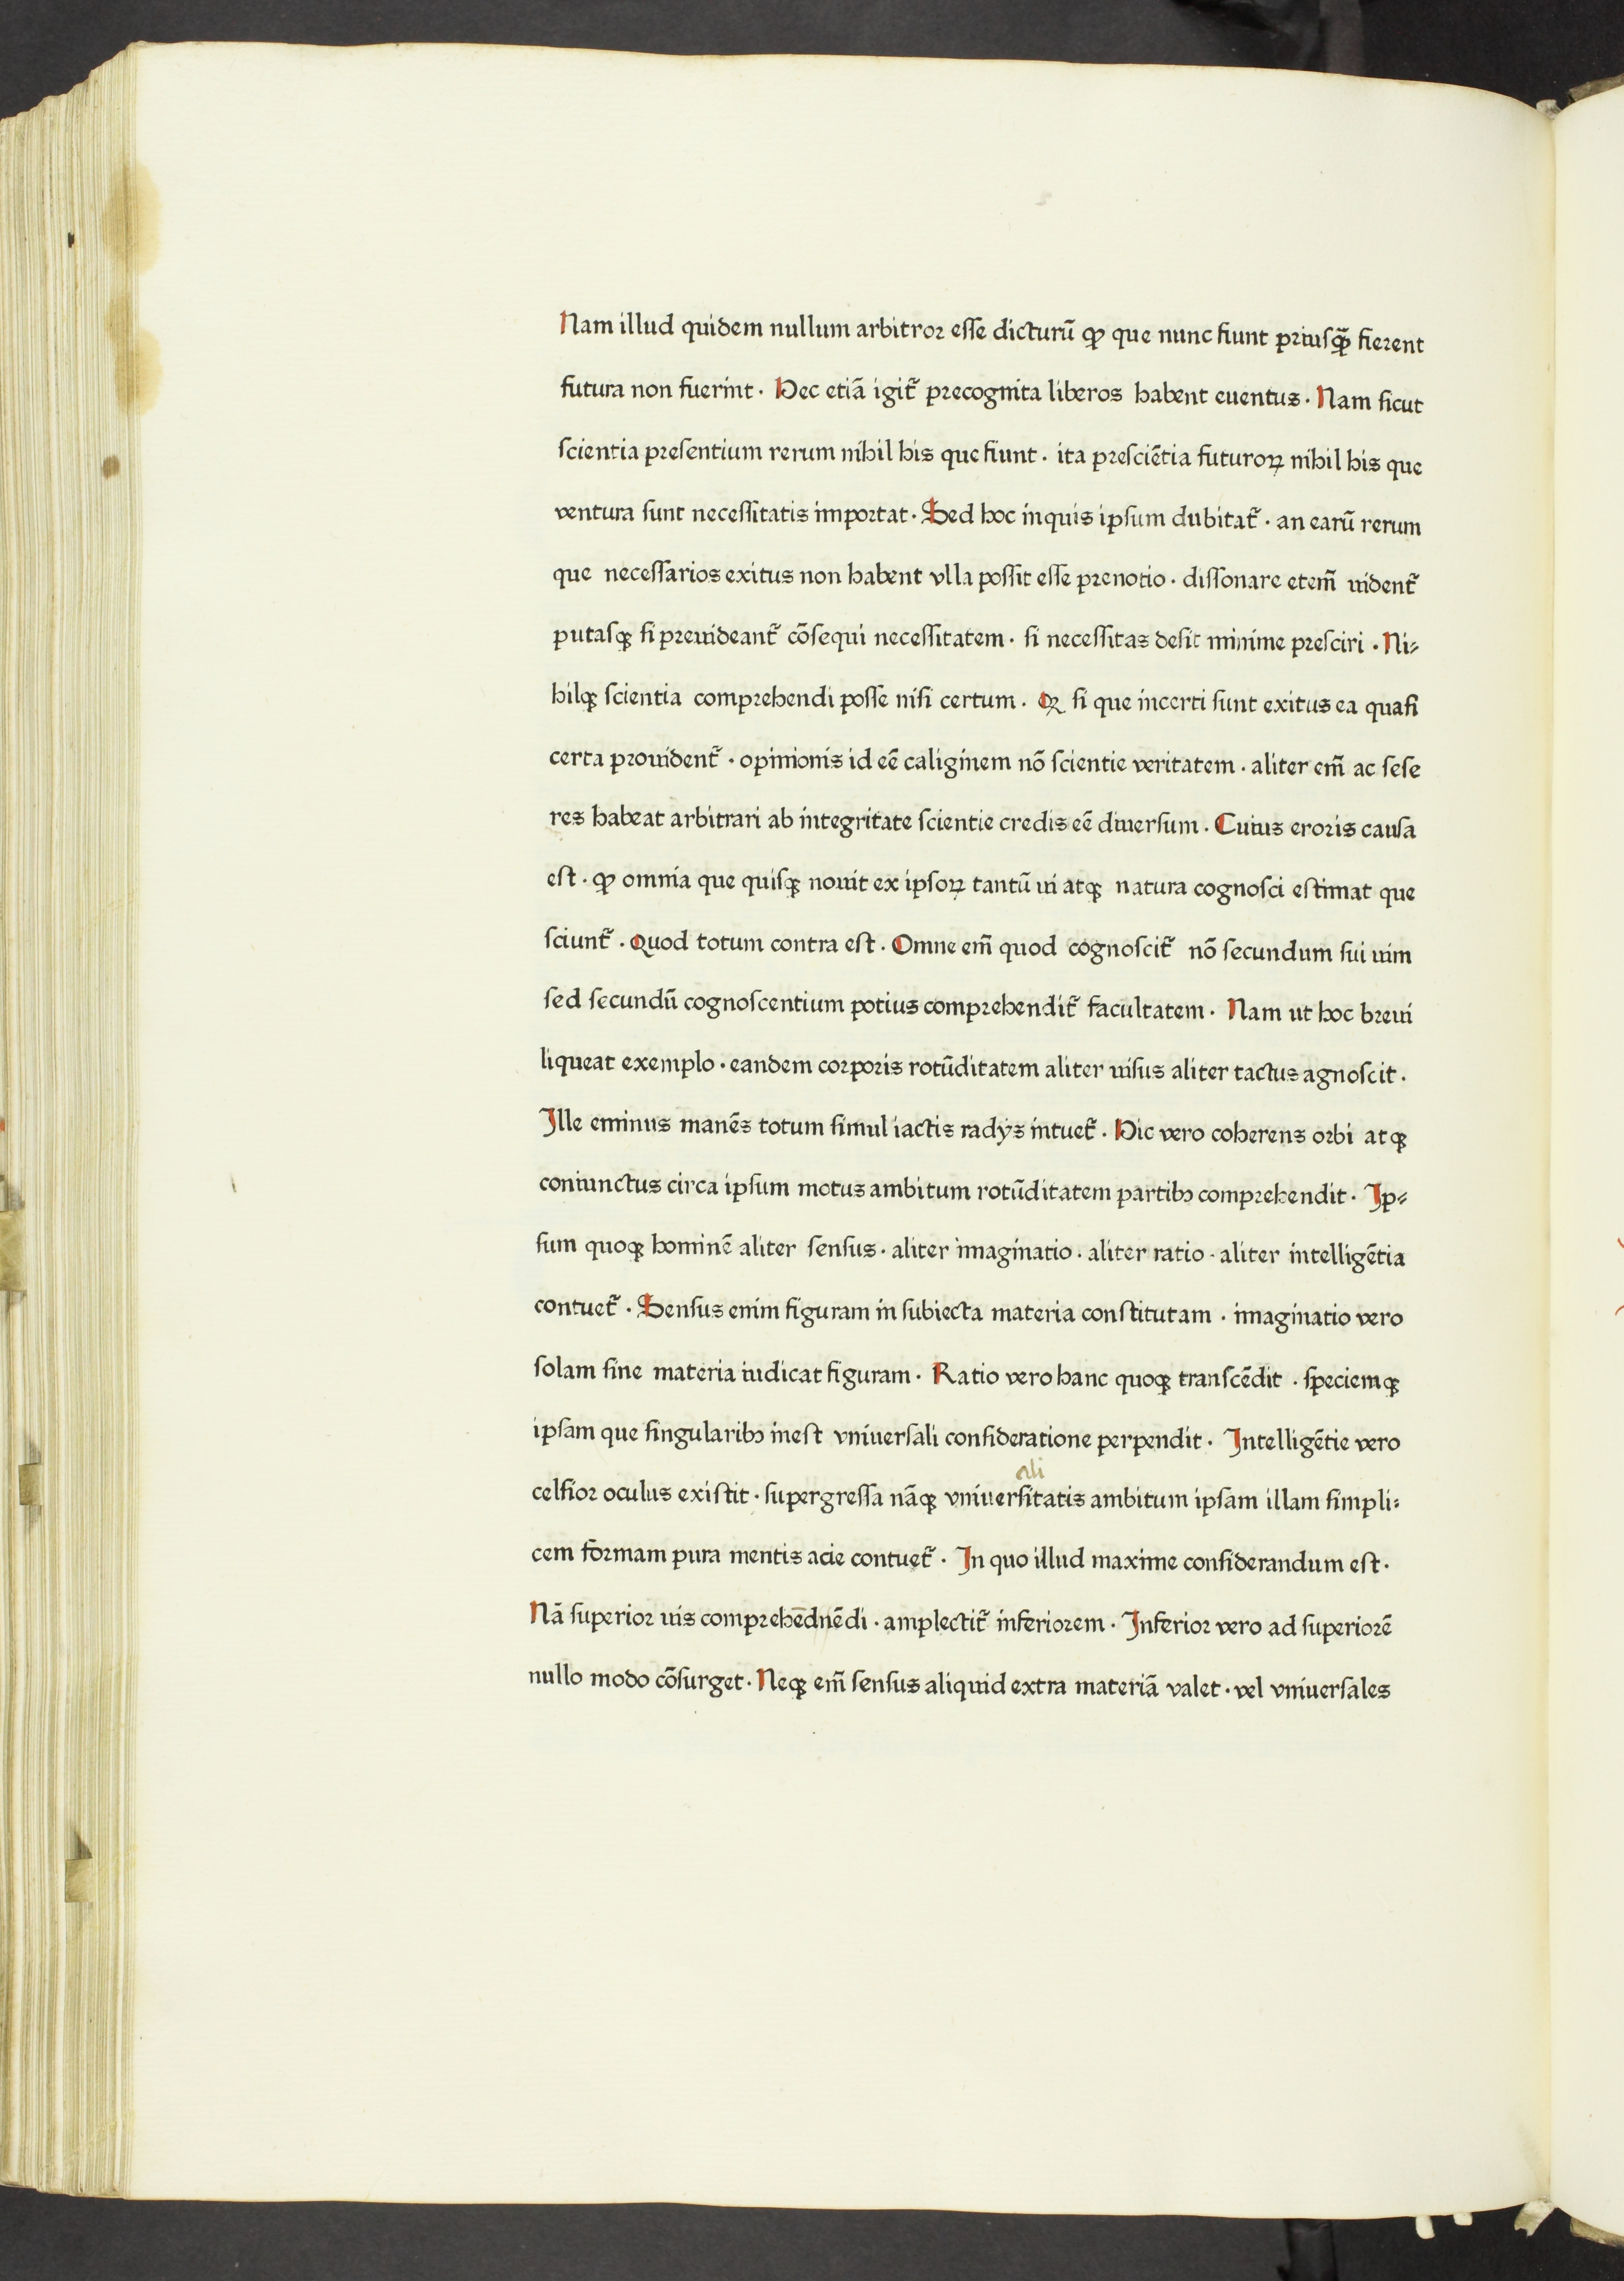 Nam illud quidem nullum arbitror eſſe dicturū ꝙ que nunc fiunt priuſꝙ̄ fierent
futura non fuerint · Hec etiā igit᷑ precognita liberos habent euentus · Nam ſicut
ſcientia preſentium rerum nihil his que fiunt · ita preſciētia futuroꝝ nihil his que
ventura ſunt neceſſitatis importat · Sed hoc inquis ipſum dubitat᷑ · an earū rerum
que neceſſarios exitus non habent vlla poſſit eſſe prenotio · diſſonare etem̄ uident᷑
putaſqꝫ ſi preuideant᷑ cōſequi neceſſitatem · ſi neceſſitas deſit minime preſciri · Ni⸗
hilqꝫ ſcientia comprehendi poſſe niſi certum · Qꝛ ſi que incerti ſunt exitus ea quaſi
certa prouident᷑ · opinionis id eē caliginem nō ſcientie veritatem · aliter em̄ ac ſeſe
res habeat arbitrari ab integritate ſcientie credis eē diuerſum · Cuius eroris cauſa
eſt · ꝙ omnia que quiſqꝫ nouit ex ipſoꝝ tantū ui atqꝫ natura cognoſci eſtimat que
ſciunt᷑ · Quod totum contra eſt · Omne em̄ quod cognoſcit᷑ nō ſecundum ſui uim
ſed ſecundū cognoſcentium potius comprehendit᷑ facultatem · Nam ut hoc breui
liqueat exemplo · eandem corporis rotūditatem aliter uiſus aliter tactus agnoſcit ·
Ille eminus manēs totum ſimul iactis radys intuet᷑ · Hic vero coherens orbi atqꝫ
coniunctus circa ipſum motus ambitum rotūditatem partibꝫ comprehendit · Ip⸗
ſum quoqꝫ hominē aliter ſenſus · aliter imaginatio · aliter ratio · aliter intelligētia
contuet᷑ · Senſus enim figuram in ſubiecta materia conſtitutam · imaginatio vero
ſolam ſine materia iudicat figuram · Ratio vero hanc quoqꝫ tranſcēdit · ſpeciemqꝫ
ipſam que ſingularibꝫ ineſt vniuerſali conſideratione perpendit · Intelligētie vero
ali
celſior oculus exiſtit · ſupergreſſa nāqꝫ vniuerſitatis ambitum ipſam illam ſimpli⸗
cem formam pura mentis acie contuet᷑ · In quo illud maxime conſiderandum eſt ·
Nā ſuperior uis comprehēdnēdi · amplectit᷑ inferiorem · Inferior vero ad ſuperiorē
nullo modo cōſurget · Neqꝫ em̄ ſenſus aliquid extra materiā valet · vel vniuerſales